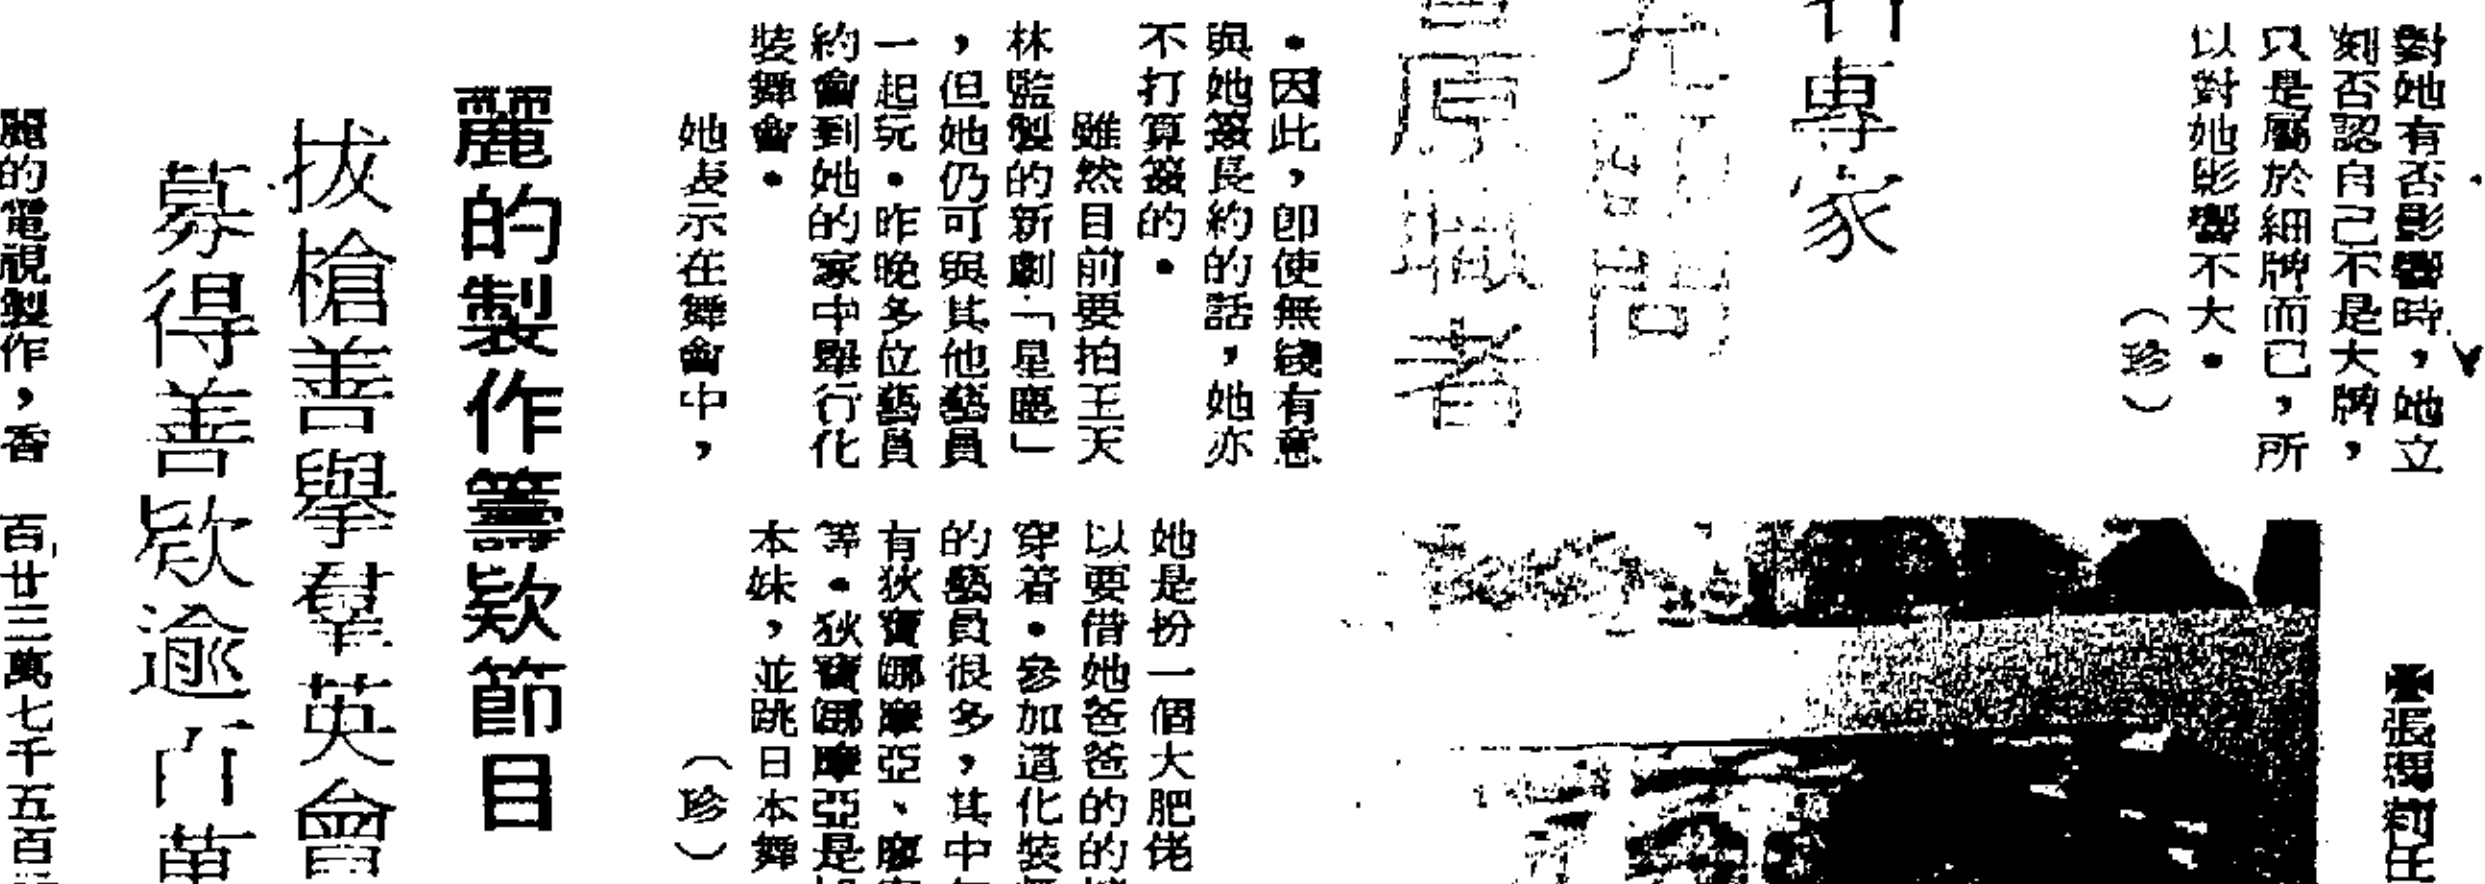 對她有否影響時，她立
刻否認自己不是大牌，
只是屬於細牌而已，所
以對她影響不大。
（珍）
專家
者
。因此，即使無綫有意
與她簽長約的話，她亦
不打算簽的。
雖然目前要拍王天
林監製的新劇「星塵」
，但她仍可與其他藝員
一起玩。昨晚多位藝員
約會到她的家中舉行化
裝舞會。
她表示在舞會中，
她是扮一個大肥佬
以要借她爸爸的
穿着。參加這化裝
的藝員很多，其中
有狄寶娜摩亞、
等。狄寶娜摩亞是
本妹，並跳日本舞
（珍）
麗的製作籌欵節目
拔槍善舉羣英會
募得善欵逾百萬
麗的電視製作，香
百廿三萬七千五百